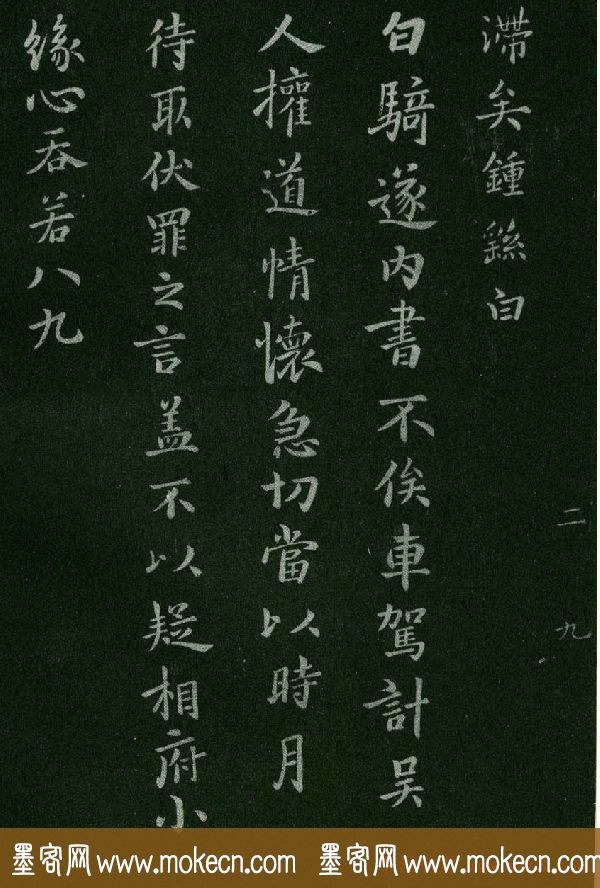 滯矣鍾繇白
白騎遂內書不俟車駕計吴
人權道情懷急切當以時月
待取伏罪之言盖不以疑相府小
緣心吞若八九
二九
墨客网 www.mokecn.com 墨客网 www.mokecn.com